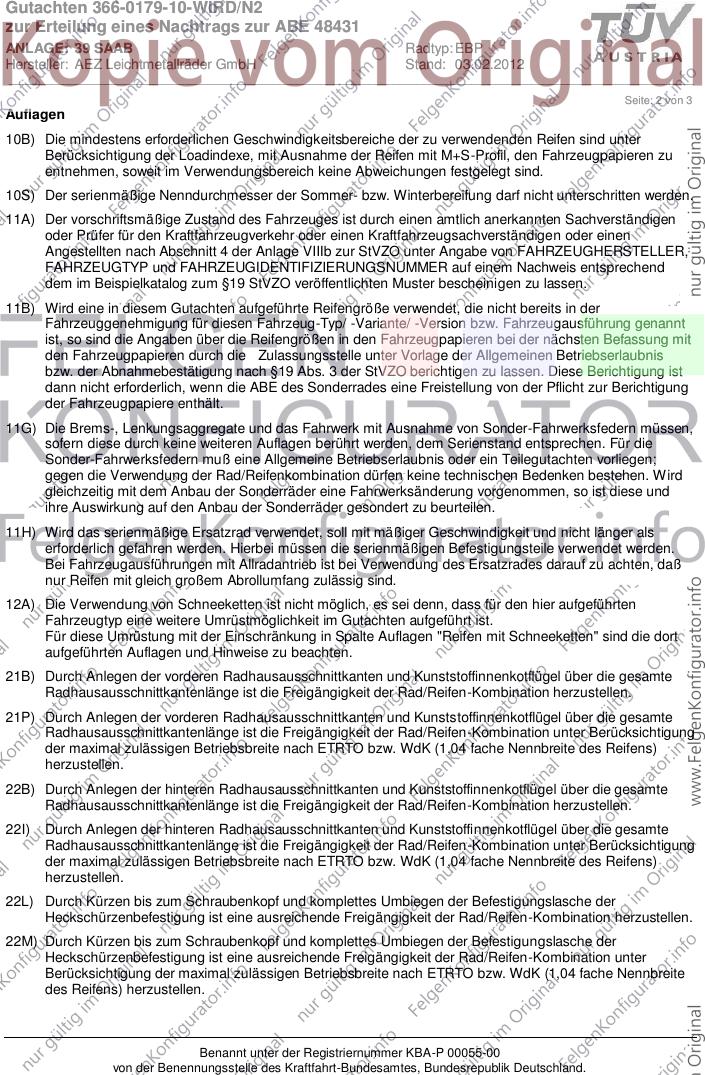 Gutachten 366-0179-10-WIRD/N2
zur Erteilung eines Nachtrags zur ABE 48431
ANLAGE: 39 SAAB Radtyp: EBP
Hersteller: AEZ Leichtmetallräder GmbH Stand: 03.02.2012
TÜV
AUSTRIA
Kopie vom Original
Seite: 2 von 3
Auflagen
10B) Die mindestens erforderlichen Geschwindigkeitsbereiche der zu verwendenden Reifen sind unter
Berücksichtigung der Loadindexe, mit Ausnahme der Reifen mit M+S-Profil, den Fahrzeugpapieren zu
entnehmen, soweit im Verwendungsbereich keine Abweichungen festgelegt sind.
10S) Der serienmäßige Nenndurchmesser der Sommer- bzw. Winterbereifung darf nicht unterschritten werden.
11A) Der vorschriftsmäßige Zustand des Fahrzeuges ist durch einen amtlich anerkannten Sachverständigen
oder Prüfer für den Kraftfahrzeugverkehr oder einen Kraftfahrzeugsachverständigen oder einen
Angestellten nach Abschnitt 4 der Anlage VIIIb zur StVZO unter Angabe von FAHRZEUGHERSTELLER,
FAHRZEUGTYP und FAHRZEUGIDENTIFIZIERUNGSNUMMER auf einem Nachweis entsprechend
dem im Beispielkatalog zum §19 StVZO veröffentlichten Muster bescheinigen zu lassen.
11B) Wird eine in diesem Gutachten aufgeführte Reifengröße verwendet, die nicht bereits in der
Fahrzeuggenehmigung für diesen Fahrzeug-Typ/ -Variante/ -Version bzw. Fahrzeugausführung genannt
ist, so sind die Angaben über die Reifengrößen in den Fahrzeugpapieren bei der nächsten Befassung mit
den Fahrzeugpapieren durch die Zulassungsstelle unter Vorlage der Allgemeinen Betriebserlaubnis
bzw. der Abnahmebestätigung nach §19 Abs. 3 der StVZO berichtigen zu lassen. Diese Berichtigung ist
dann nicht erforderlich, wenn die ABE des Sonderrades eine Freistellung von der Pflicht zur Berichtigung
der Fahrzeugpapiere enthält.
11G) Die Brems-, Lenkungsaggregate und das Fahrwerk mit Ausnahme von Sonder-Fahrwerksfedern müssen,
sofern diese durch keine weiteren Auflagen berührt werden, dem Serienstand entsprechen. Für die
Sonder-Fahrwerksfedern muß eine Allgemeine Betriebserlaubnis oder ein Teilegutachten vorliegen;
gegen die Verwendung der Rad/Reifenkombination dürfen keine technischen Bedenken bestehen. Wird
gleichzeitig mit dem Anbau der Sonderräder eine Fahrwerksänderung vorgenommen, so ist diese und
ihre Auswirkung auf den Anbau der Sonderräder gesondert zu beurteilen.
11H) Wird das serienmäßige Ersatzrad verwendet, soll mit mäßiger Geschwindigkeit und nicht länger als
erforderlich gefahren werden. Herbei müssen die serienmäßigen Befestigungsteile verwendet werden.
Bei Fahrzeugausführungen mit Allradantrieb ist bei Verwendung des Ersatzrades darauf zu achten, daß
nur Reifen mit gleich großem Abrollumfang zulässig sind.
12A) Die Verwendung von Schneeketten ist nicht möglich, es sei denn, dass für den hier aufgeführten
Fahrzeugtyp eine weitere Umrüstmöglichkeit im Gutachten aufgeführt ist.
Für diese Umrüstung mit der Einschränkung in Spalte Auflagen "Reifen mit Schneeketten" sind die dort
aufgeführten Auflagen und Hinweise zu beachten.
21B) Durch Anlegen der vorderen Radhausausschnittkanten und Kunststoffinnenkotflügel über die gesamte
Radhausausschnittkantenlänge ist die Freigängigkeit der Rad/Reifen-Kombination herzustellen.
21P) Durch Anlegen der vorderen Radhausausschnittkanten und Kunststoffinnenkotflügel über die gesamte
Radhausausschnittkantenlänge ist die Freigängigkeit der Rad/Reifen-Kombination unter Berücksichtigung
der maximal zulässigen Betriebsbreite nach ETRTO bzw. WdK (1,04 fache Nennbreite des Reifens)
herzustellen.
22B) Durch Anlegen der hinteren Radhausausschnittkanten und Kunststoffinnenkotflügel über die gesamte
Radhausausschnittkantenlänge ist die Freigängigkeit der Rad/Reifen-Kombination herzustellen.
22I) Durch Anlegen der hinteren Radhausausschnittkanten und Kunststoffinnenkotflügel über die gesamte
Radhausausschnittkantenlänge ist die Freigängigkeit der Rad/Reifen-Kombination unter Berücksichtigung
der maximal zulässigen Betriebsbreite nach ETRTO bzw. WdK (1,04 fache Nennbreite des Reifens)
herzustellen.
22L) Durch Kürzen bis zum Schraubenkopf und komplettes Umbiegen der Befestigungslasche der
Heckschürzenbefestigung ist eine ausreichende Freigängigkeit der Rad/Reifen-Kombination herzustellen.
22M) Durch Kürzen bis zum Schraubenkopf und komplettes Umbiegen der Befestigungslasche der
Heckschürzenbefestigung ist eine ausreichende Freigängigkeit der Rad/Reifen-Kombination unter
Berücksichtigung der maximal zulässigen Betriebsbreite nach ETRTO bzw. WdK (1,04 fache Nennbreite
des Reifens) herzustellen.
FELGEN
KONFIGURATOR
FelgenKonfigurator.info
nur gültig im Original
www.FelgenKonfigurator.info
Benannt unter der Registriernummer KBA-P 00055-00
von der Benennungsstelle des Kraftfahrt-Bundesamtes, Bundesrepublik Deutschland.